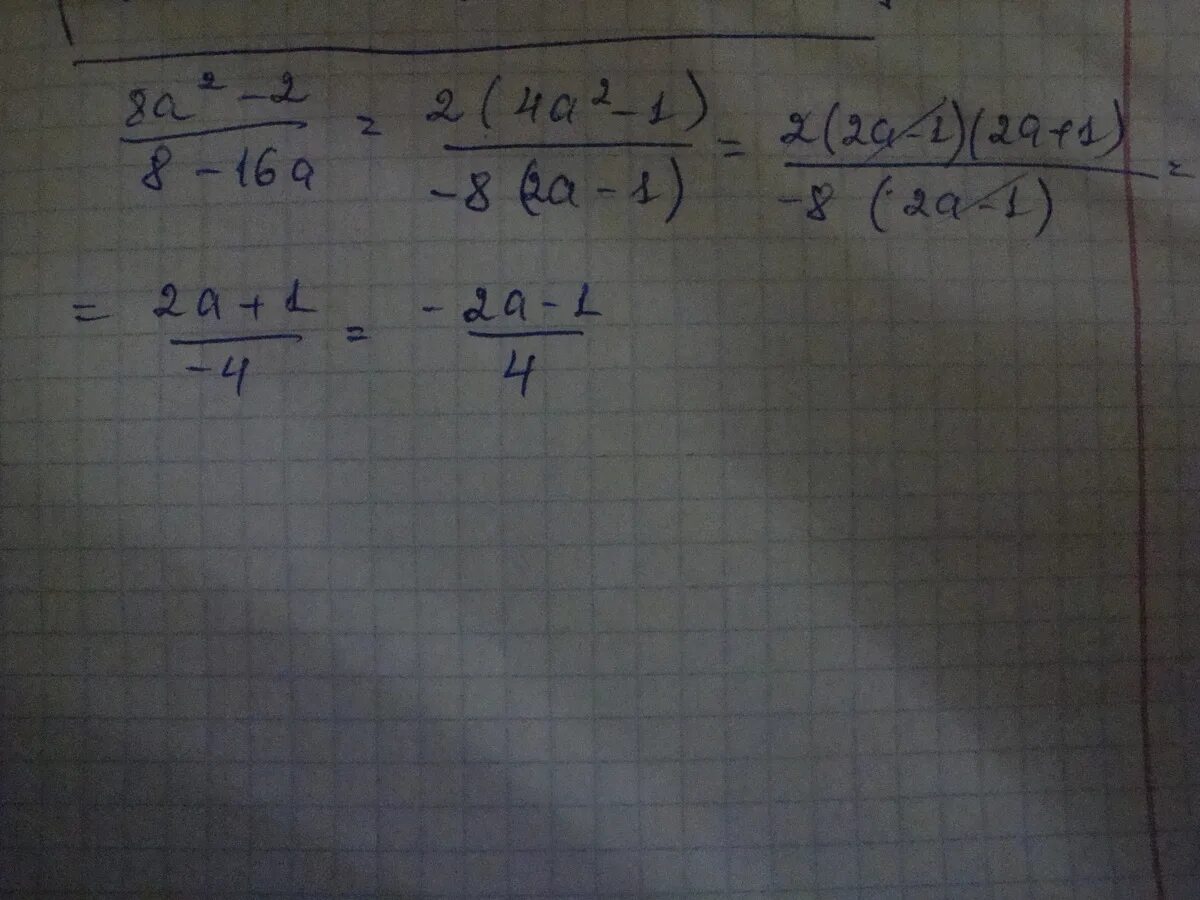 (8a² - 2)/(8 - 16a) = 2(4a² - 1)/(-8(2a - 1)) = 2(2a - 1)(2a + 1)/(-8(2a - 1)) =
= (2a + 1)/(-4) = (-2a - 1)/4